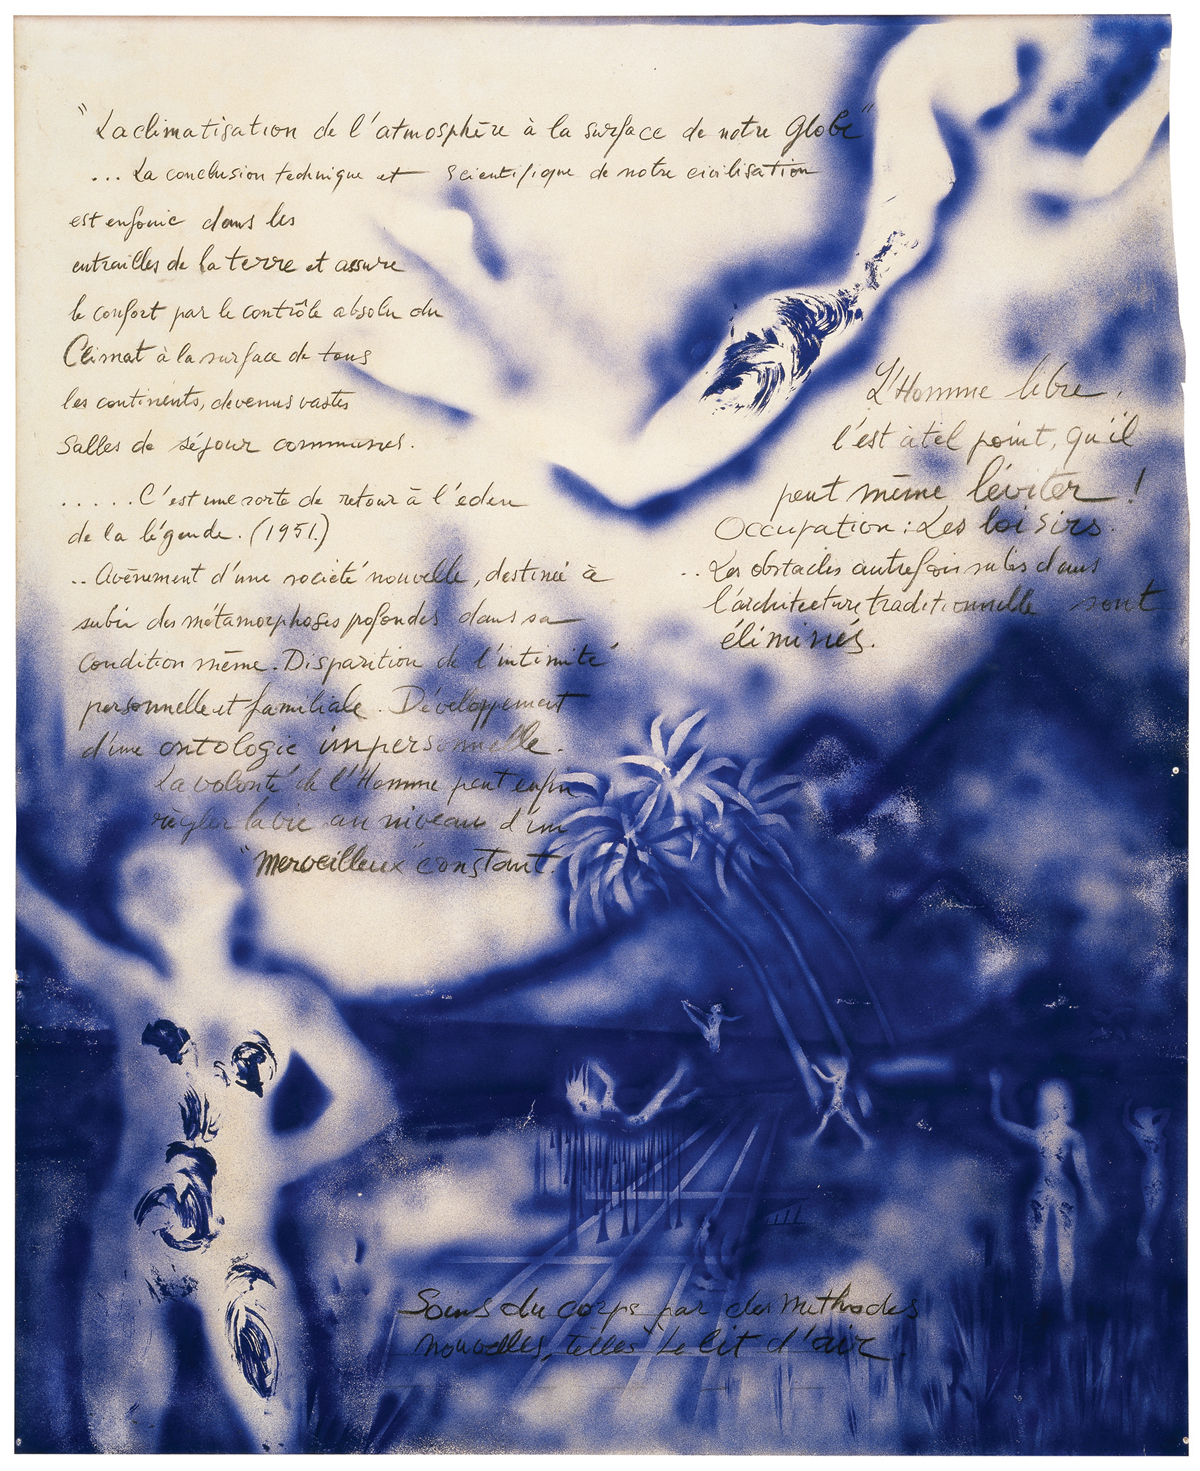 "La climatisation de l'atmosphère à la surface de notre Globe"
... La conclusion technique et scientifique de notre civilisation
est enfouie dans les
entrailles de la terre et assure
le confort par le contrôle absolu du
Climat à la surface de tous
les continents, devenus vastes
Salles de séjour communes.
..... C'est une sorte de retour à l'éden
de la légende. (1951.)
.. Avènement d'une société nouvelle, destinée à
subir des métamorphoses profondes dans sa
Condition même. Disparition de l'intimité
personnelle et familiale. Développement
d'une ontologie impersonnelle.
La volonté de l'Homme peut enfin
règler la vie au niveau d'un
"merveilleux" constant.
L'Homme libre,
l'est à tel point, qu'il
peut même léviter !
Occupation : Les loisirs.
.. Les obstacles autrefois subis dans
l'architecture traditionnelle sont
éliminés.
Soins du corps par des Méthodes
Nouvelles, telles le lit d'air.